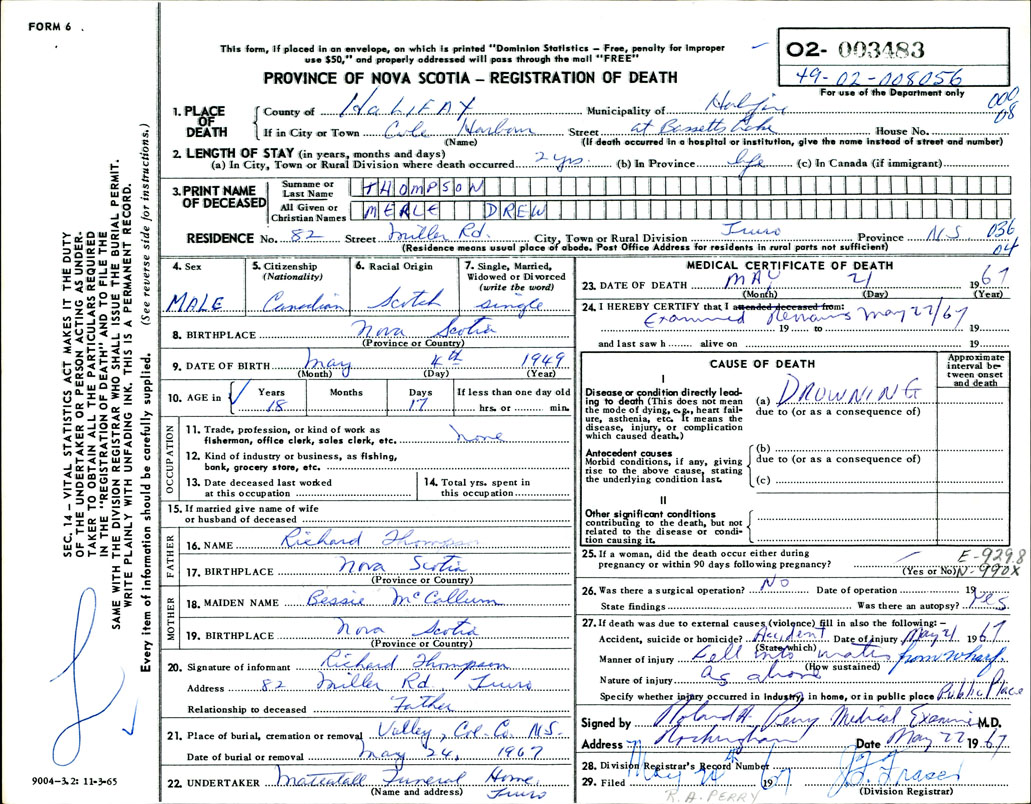 FORM 6 .
This form, if placed in an envelope, on which is printed "Dominion Statistics – Free, penalty for improper
use $50," and properly addressed will pass through the mail "FREE"
O2- 003483
49-02-008056
For use of the Department only
PROVINCE OF NOVA SCOTIA – REGISTRATION OF DEATH
000
08
1. PLACE OF DEATH
County of HALIFAX Municipality of Halifax
If in City or Town Cole Harbour Street at Bissetts Lake House No.
(Name) (If death occurred in a hospital or institution, give the name instead of street and number)
2. LENGTH OF STAY (in years, months and days)
(a) In City, Town or Rural Division where death occurred 2 yrs. (b) In Province life (c) In Canada (if immigrant)
3. PRINT NAME OF DECEASED
Surname or Last Name THOMPSON
All Given or Christian Names MERLE DREW
RESIDENCE No. 82 Street Miller Rd. City, Town or Rural Division Truro Province N.S
036
04
(Residence means usual place of abode. Post Office Address for residents in rural parts not sufficient)
4. Sex MALE
5. Citizenship (Nationality) Canadian
6. Racial Origin Scotch
7. Single, Married, Widowed or Divorced (write the word) single
8. BIRTHPLACE Nova Scotia
(Province or Country)
9. DATE OF BIRTH May 4th 1949
(Month) (Day) (Year)
10. AGE in Years 18 Months Days 17 If less than one day old hrs. or min.
OCCUPATION
11. Trade, profession, or kind of work as fisherman, office clerk, sales clerk, etc. none
12. Kind of industry or business, as fishing, bank, grocery store, etc.
13. Date deceased last worked at this occupation
14. Total yrs. spent in this occupation
15. If married give name of wife or husband of deceased
FATHER
16. NAME Richard Thompson
17. BIRTHPLACE Nova Scotia
(Province or Country)
MOTHER
18. MAIDEN NAME Bessie McCallum
19. BIRTHPLACE Nova Scotia
(Province or Country)
20. Signature of informant Richard Thompson
Address 82 Miller Rd Truro
Relationship to deceased Father
21. Place of burial, cremation or removal Valley, Col. Co. N.S.
Date of burial or removal May 24, 1967
22. UNDERTAKER Mattatall Funeral Home,
(Name and address) Truro
MEDICAL CERTIFICATE OF DEATH
23. DATE OF DEATH MAY 21 1967
(Month) (Day) (Year)
24. I HEREBY CERTIFY that I attended deceased from:
Examined Remains May 22/67
19 to 19
and last saw h alive on 19
CAUSE OF DEATH
Approximate interval between onset and death
I
Disease or condition directly leading to death (This does not mean the mode of dying, e.g., heart failure, asthenia, etc. It means the disease, injury, or complication which caused death.)
(a) DROWNING
due to (or as a consequence of)
Antecedent causes
Morbid conditions, if any, giving rise to the above cause, stating the underlying condition last.
(b)
due to (or as a consequence of)
(c)
II
Other significant conditions
contributing to the death, but not related to the disease or condition causing it.
25. If a woman, did the death occur either during
pregnancy or within 90 days following pregnancy? (Yes or No)
E-929.8
N-990X
26. Was there a surgical operation? No Date of operation 19
State findings Was there an autopsy? Yes
27. If death was due to external causes (violence) fill in also the following: –
Accident, suicide or homicide? Accident Date of injury May 21 1967
(State which)
Manner of injury Fell into water from wharf.
(How sustained)
Nature of injury as above
Specify whether injury occurred in industry, in home, or in public place Public Place
Signed by Roland A. Perry Medical Examiner M.D.
Address Rockingham Date May 22 1967
28. Division Registrar's Record Number
29. Filed May 1967 Fraser
(Division Registrar)
R.A. PERRY
SEC. 14 – VITAL STATISTICS ACT MAKES IT THE DUTY
OF THE UNDERTAKER OR PERSON ACTING AS UNDER-
TAKER TO OBTAIN ALL THE PARTICULARS REQUIRED
IN THE "REGISTRATION OF DEATH" AND TO FILE THE
SAME WITH THE DIVISION REGISTRAR WHO SHALL ISSUE THE BURIAL PERMIT.
WRITE PLAINLY WITH UNFADING INK. THIS IS A PERMANENT RECORD.
Every item of information should be carefully supplied. (See reverse side for instructions.)
9004–3.2: 11-3-65